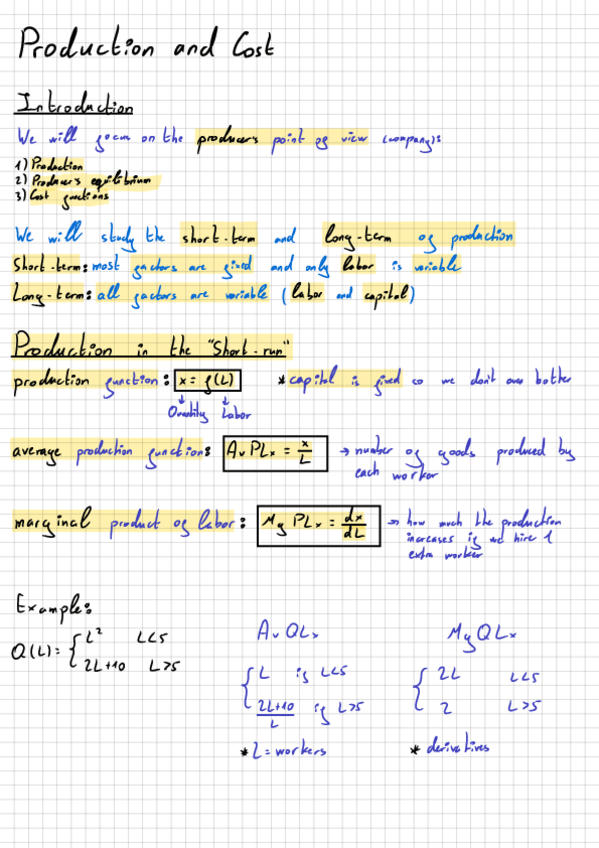 Production and Cost
Introduction
We will focus on the producer's point of view (company):
1) Production
2) Producer's equilibrium
3) Cost functions
We will study the short-term and long-term of production
Short-term: most factors are fixed and only labor is variable
Long-term: all factors are variable (labor and capital)
Production in the "Short-run"
production function: x = f(L) * capital is fixed so we don't even bother
↓ ↓
Quantity Labor
average production function: Av PLx = x/L → number of goods produced by
each worker
marginal product of labor: Mg PLx = dx/dL → how much the production
increases if we hire 1
extra worker
Example:
Q(L) = { L² L<5
2L+10 L>5
Av QLx
{ L if L<5
(2L+10)/L if L>5
* L = workers
Mg QLx
{ 2L L<5
2 L>5
* derivatives